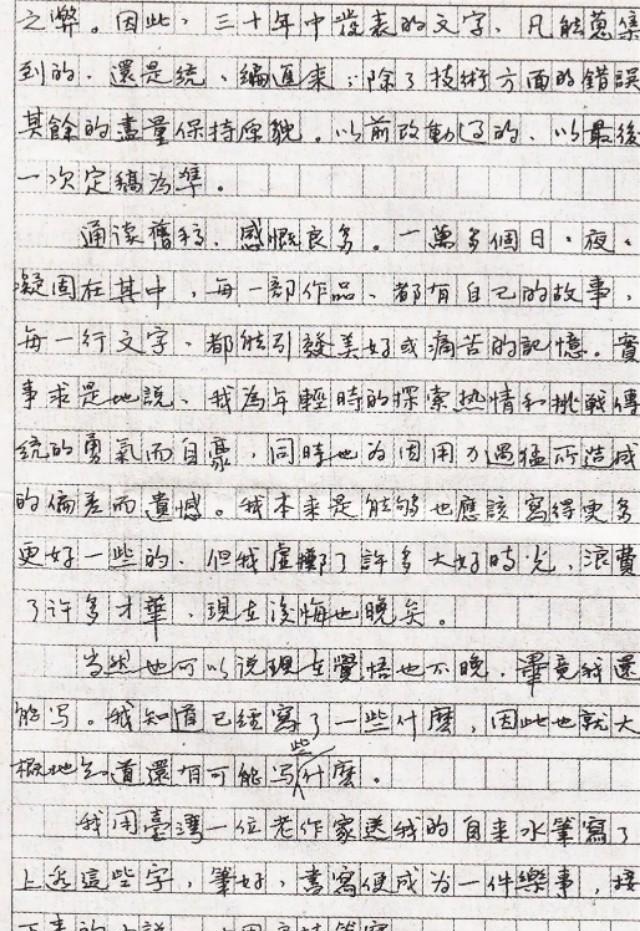 之弊。因此、三十年中發表的文字、凡能蒐集
到的、還是統、編進来；除了技術方面的錯誤
其餘的盡量保持原貌。以前改動过的、以最後
一次定稿為準。
通读舊稿、感慨良多。一萬多個日、夜、
凝固在其中，每一部作品、都有自己的故事，
每一行文字、都能引發美好或痛苦的記憶。實
事求是地說、我為年輕時的探索热情和挑戰傳
統的勇氣而自豪，同時也為因用力過猛所造成
的偏差而遺憾。我本来是能够也應該寫得更多
更好一些的、但我虛擲了許多大好時光、浪費
了许多才華、現在後悔也晚矣。
当然也可以说現在覺悟也不晚、畢竟我還
能写。我知道已經寫了一些什麼，因此也就大
概地知道還有可能写些什麼。
我用臺灣一位老作家送我的自来水筆寫了
上述這些字，筆好，書寫便成为一件樂事，接